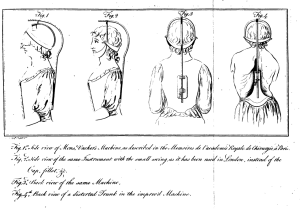 Fig. 1
Fig. 2
Fig. 3
Fig. 4
Fig. 1. Side view of Mons. Vachers Machine, as described in the Memoires de l'academie Royale de Chirurgie à Paris.
Fig. 2. Side view of the same Instrument with the small swing as it has been used in London, instead of the
Cap, fillet, &c.
Fig. 3. Back view of the same Machine.
Fig. 4th. Back view of a distorted Trunk in the improved Machine.